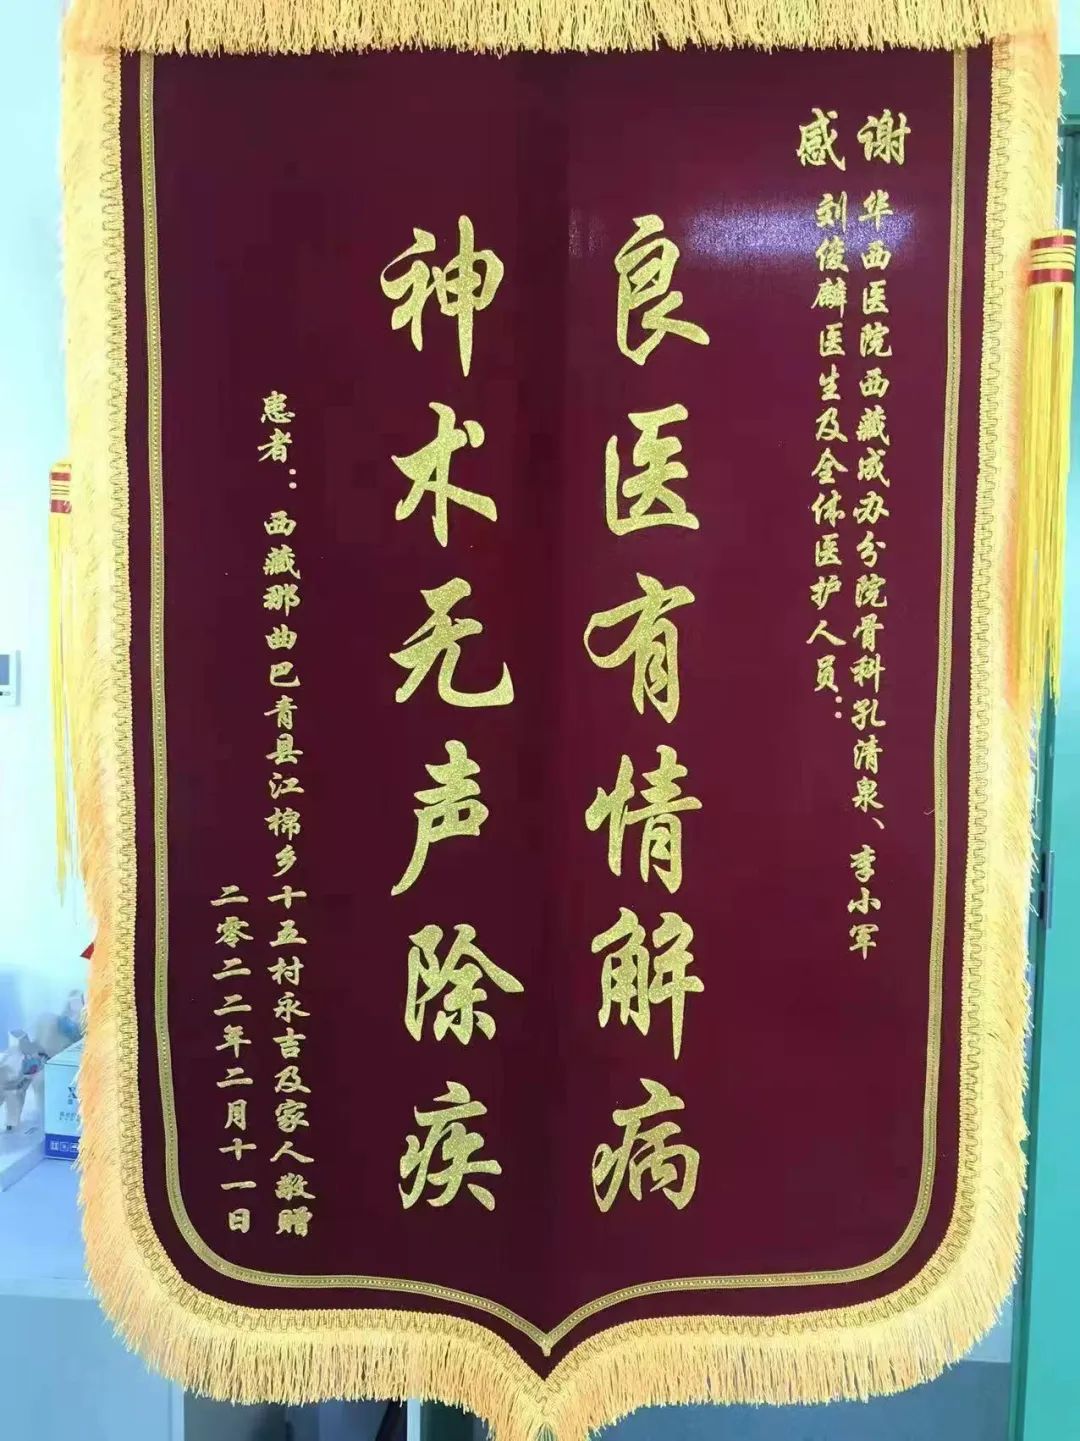 感谢
华西医院西藏成办分院骨科孔清泉、李小军
刘俊麟医生及全体医护人员：
良医有情解病
神术无声除疾
患者：西藏那曲巴青县江棉乡十五村永吉及家人敬赠
二零二二年二月十一日